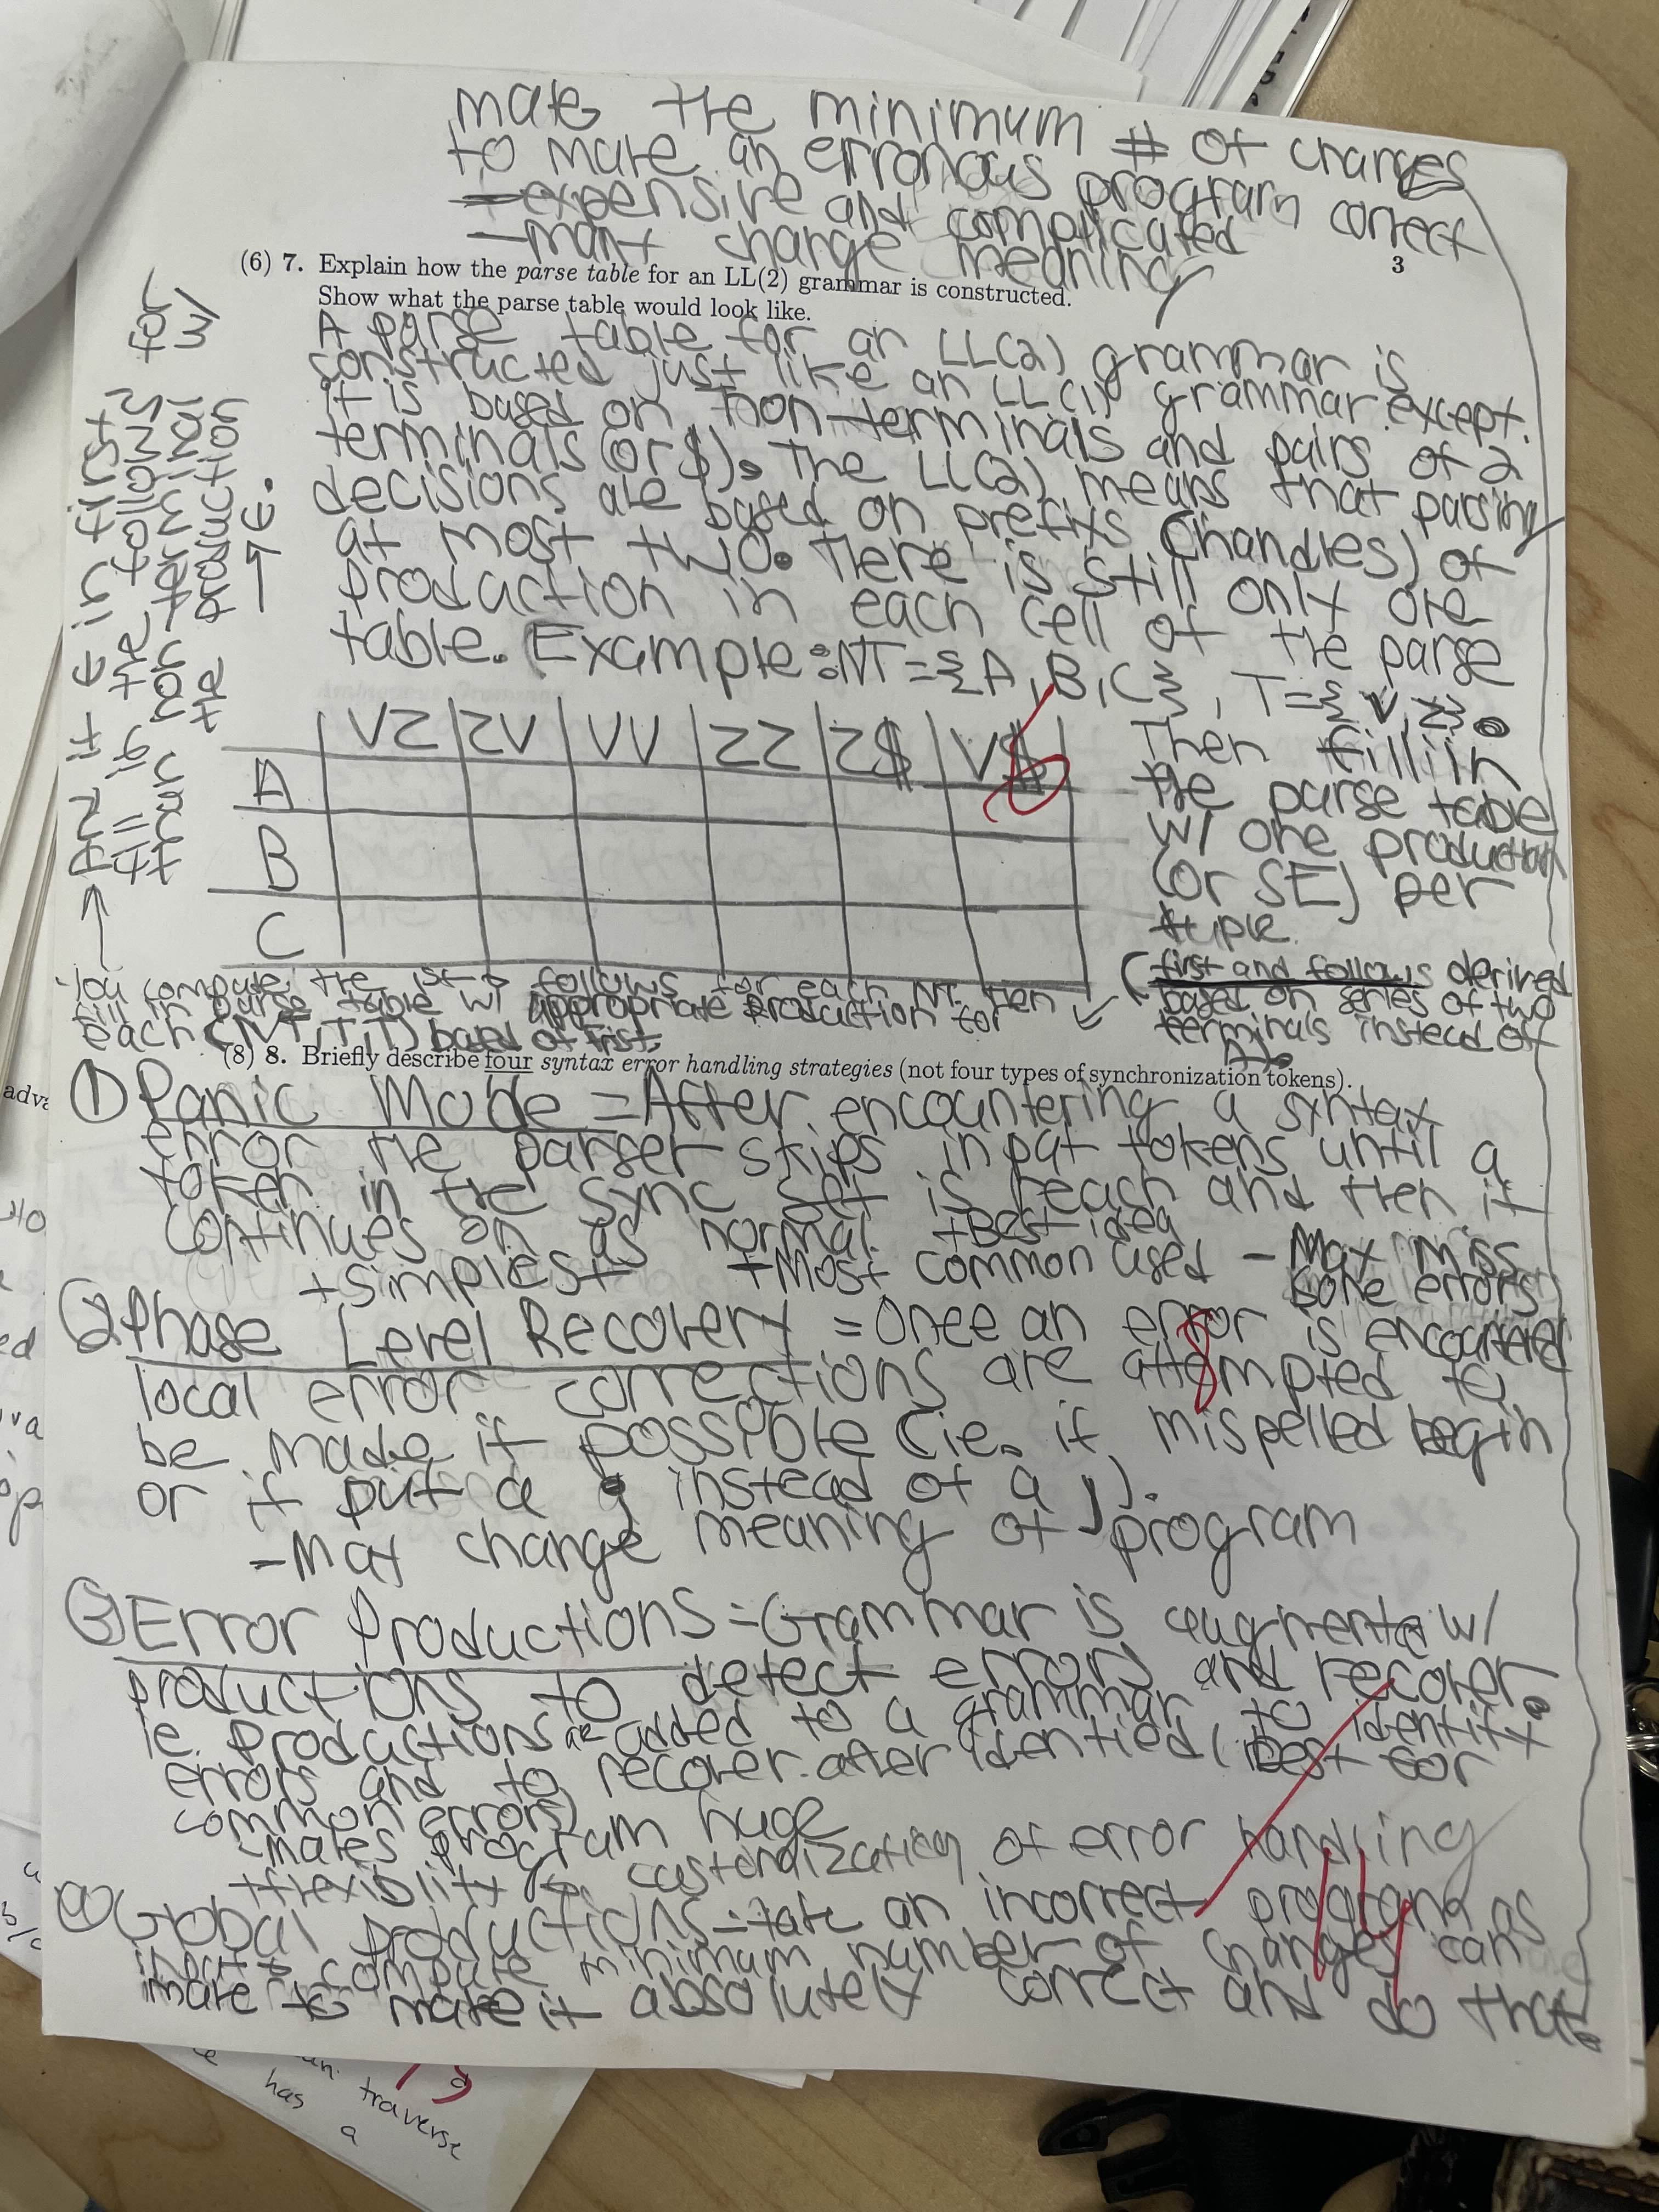 make the minimum # of changes
to make an erronous program correct
- expensive and complicated
- may change meaning
3
(6) 7. Explain how the parse table for an LL(2) grammar is constructed.
Show what the parse table would look like.
A parse table for an LL(2) grammar is
constructed just like an LL(1) grammar except
it is based on non-terminals and pairs of 2
terminals (or $). The LL(2) means that parsing
decisions are based on prefixs (handles) of
at most two. There is still only one
production in each cell of the parse
table. Example: NT = {A, B, C}, T = {v, z}.
VZ ZV VV ZZ Z$ V$
A
B
C
6
Then fill in
the parse table
w/ one production
(or SE) per
tuple.
(first and follows derived
based on series of two
terminals instead of
1).
You compute the 1st + follows for each NT. Then
fill in parse table w/ appropriate production for
each (NT, T, T) based of first.
And if ε in first for
fill in the follows w/
that non terminal
the production
→ ε.
(8) 8. Briefly describe four syntax error handling strategies (not four types of synchronization tokens).
① Panic Mode = After encountering a syntax
error the parser skips input tokens until a
token in the sync set is reach and then it
continues on as normal. + Best idea
+ simplest + Most common used - May miss
some errors
② Phase Level Recovery = Once an error is encountered
local error corrections are attempted to
be made if possible (ie. if mispelled begin
or if put a ; instead of a ,).
- May change meaning of program
8
③ Error Productions = Grammar is augmented w/
productions to detect errors and recover.
ie. productions are added to a grammar to identify
errors and to recover after identied (best for
common errors)
- makes program huge
+ flexiblity customization of error handling
④ Global productions = take an incorrect program as
input + compute minimum number of changes can
make to make it absolutely correct and do that.
/14
adva
ed
has
a
traverse